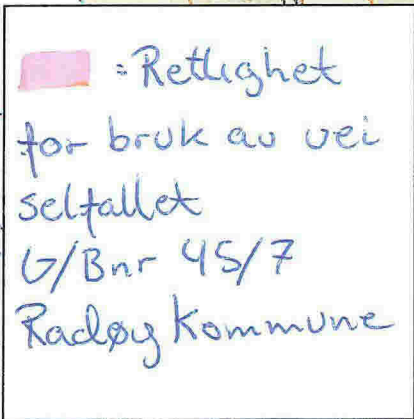 = Rettighet
for bruk av vei
selfallet
G/Bnr 45/7
Radøy Kommune